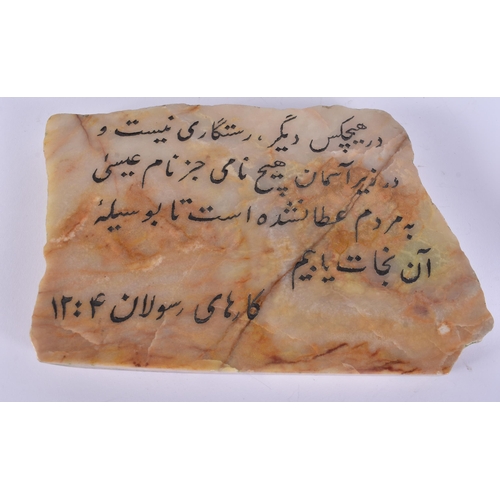 در هیچکس دیگر، رستگاری نیست و
در زیر آسمان هیچ نامی جز نام عیسیٰ
به مردم عطا نشده است تا بوسیلهٔ
آن نجات یابیم
کارهای رسولان ۱۲:۴